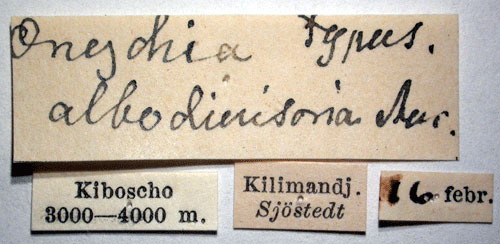 Oneychia typus.
albodivisoria Aur.
Kiboscho
3000—4000 m.
Kilimandj.
Sjöstedt
16 febr.